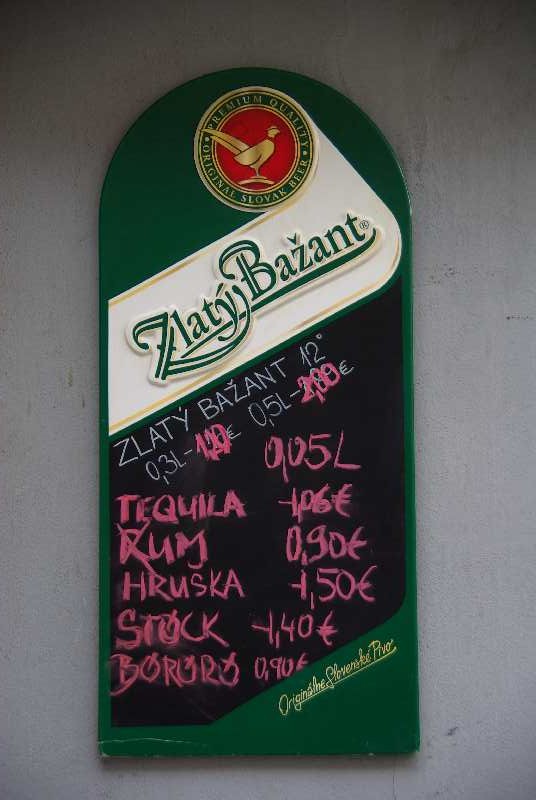 PREMIUM QUALITY
ORIGINAL SLOVAK BEER
Zlatý Bažant®
ZLATÝ BAŽANT 12°
0,3L- € 0,5L- €
0,05L
TEQUILA 1,06€
RUM 0,90€
HRUŠKA 1,50€
STOCK 1,40€
BORORO 0,90€
Originálne Slovenské Pivo